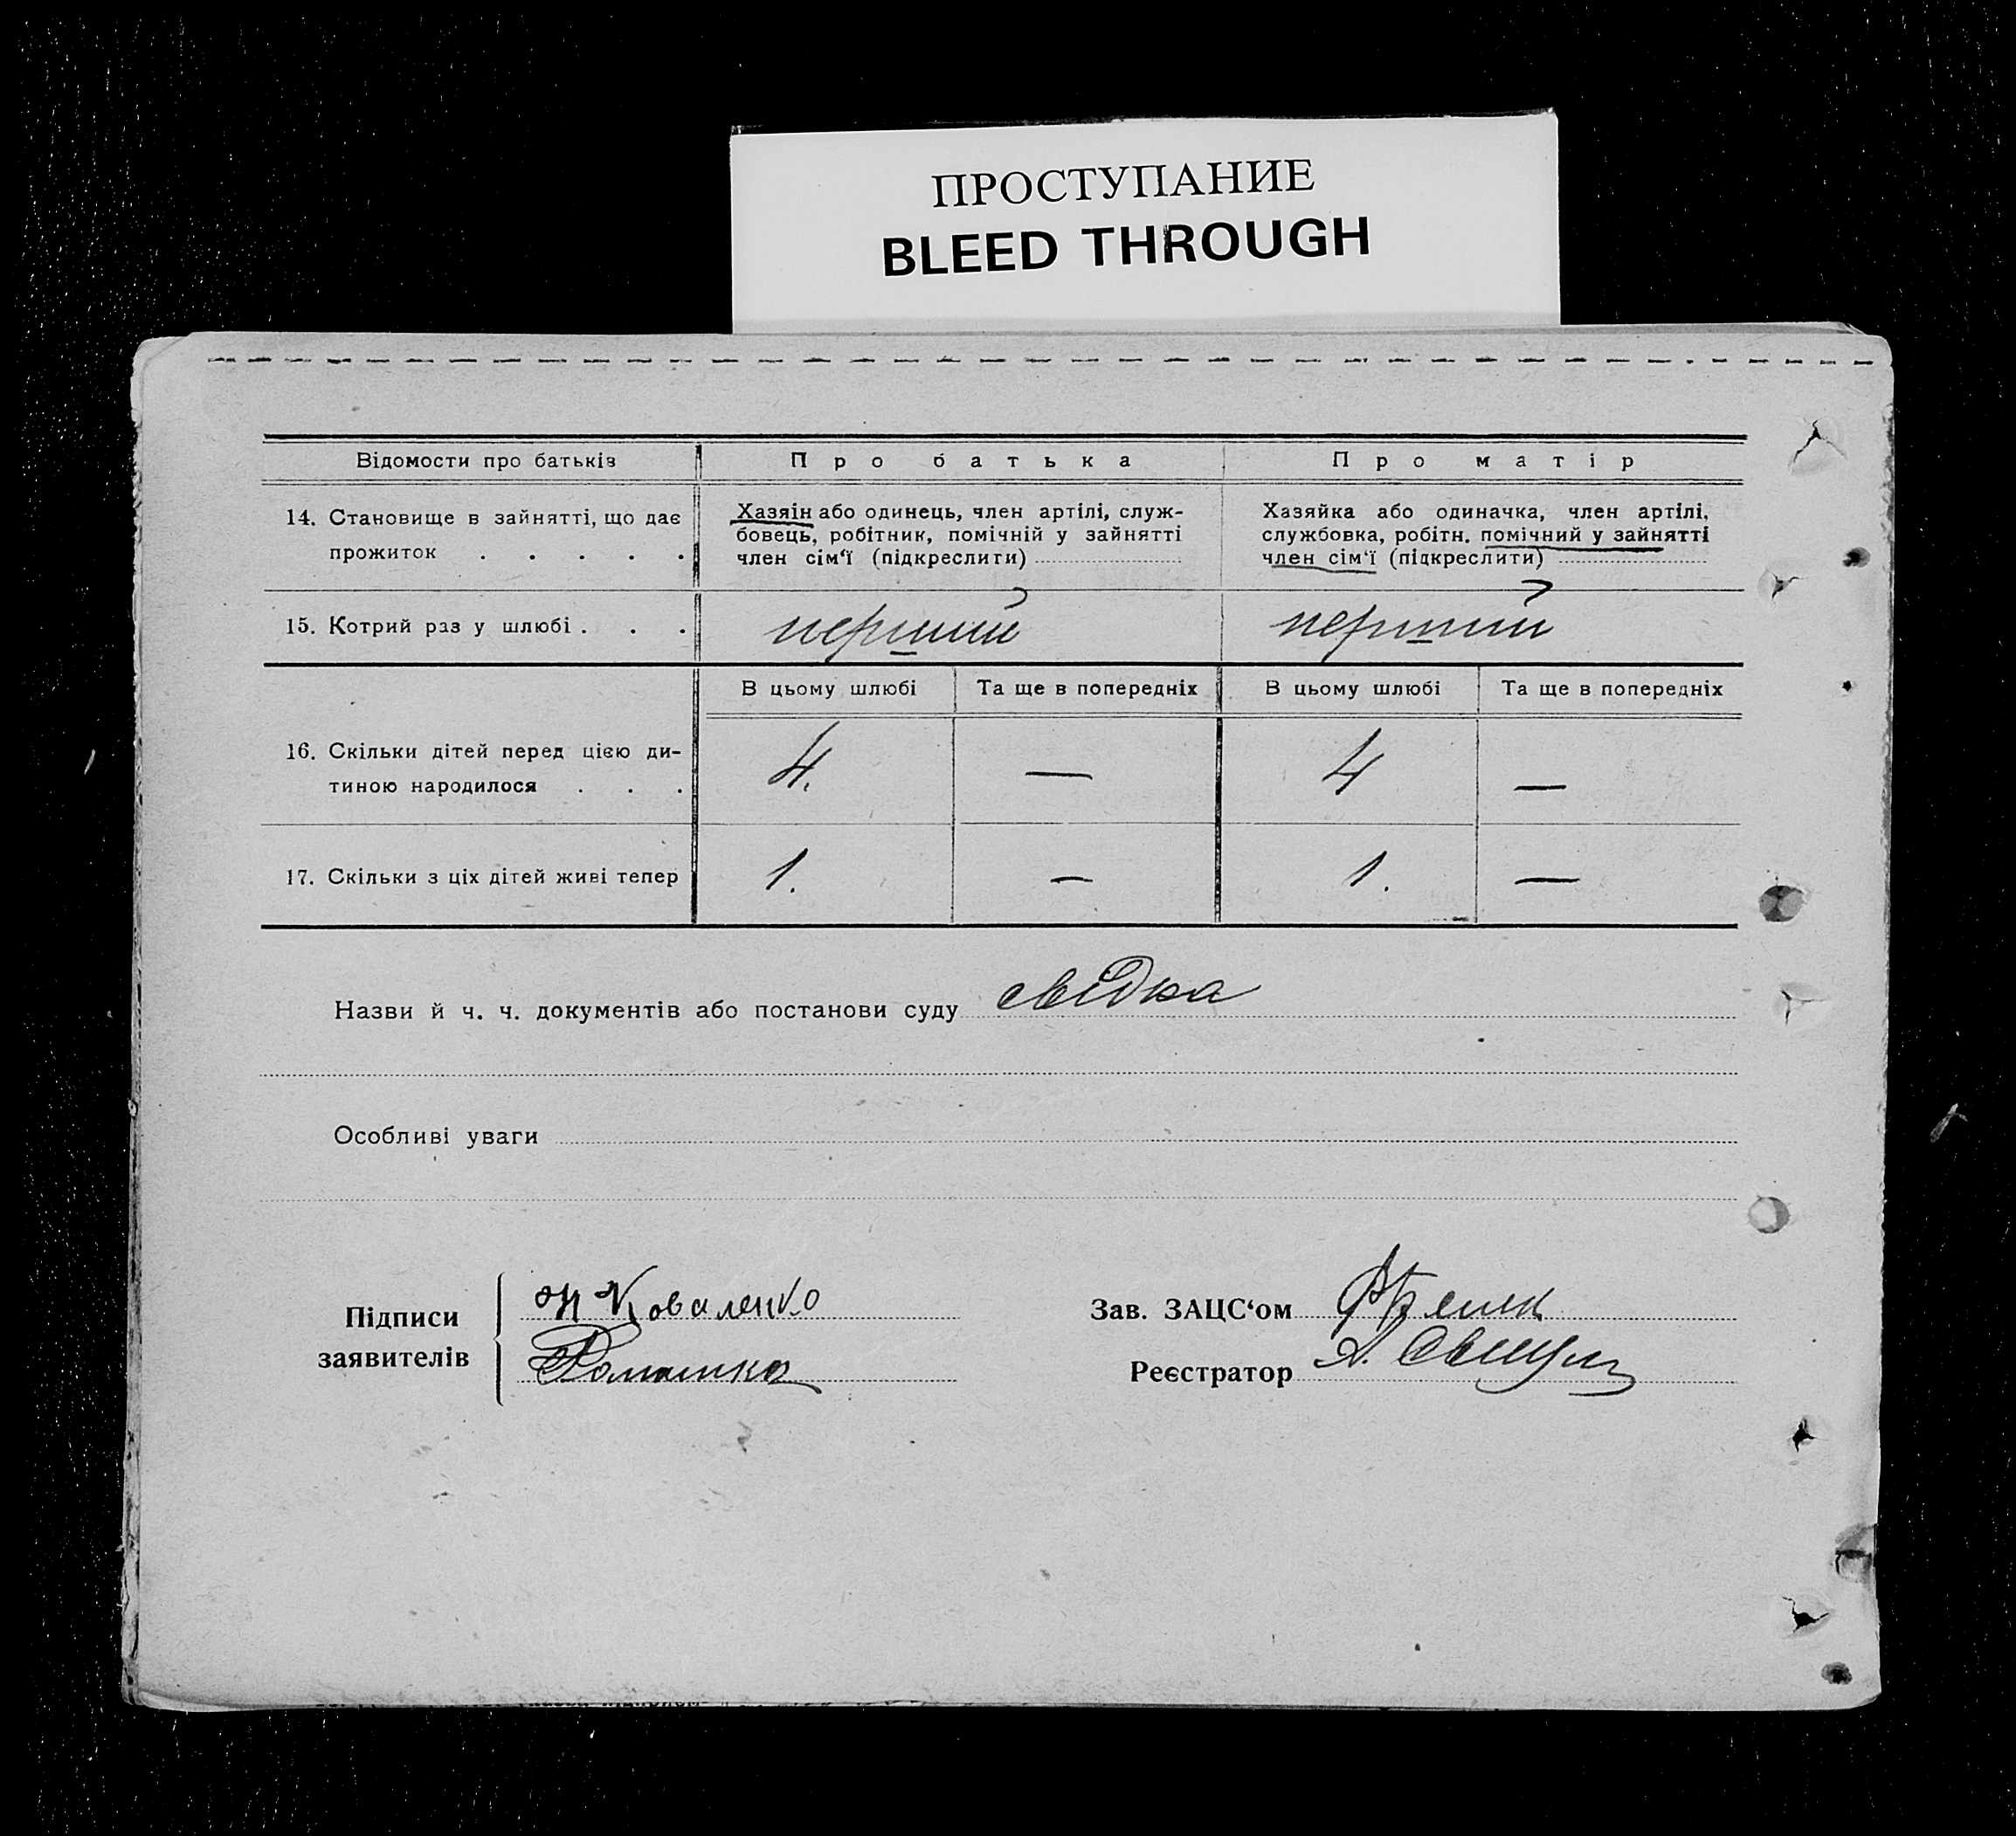 ПРОСТУПАНИЕ
BLEED THROUGH
Відомости про батьків
Про батька
Про матір
14. Становище в зайнятті, що дає
прожиток . . . . .
Хазяін або одинець, член артілі, служ-
бовець, робітник, помічній у зайнятті
член сім‘ї (підкреслити)
Хазяйка або одиначка, член артілі,
службовка, робітн. помічний у зайнятті
член сім‘ї (підкреслити)
15. Котрий раз у шлюбі . . .
перший
перший
В цьому шлюбі
Та ще в попередніх
В цьому шлюбі
Та ще в попередніх
16. Скільки дітей перед цією ди-
тиною народилося . . .
4.
—
4
—
17. Скільки з ціх дітей живі тепер
1.
—
1.
—
Назви й ч. ч. документів або постанови суду свідка
Особливі уваги
Підписи
заявителів
Коваленко
Ромашка
Зав. ЗАЦС‘ом
Реєстратор